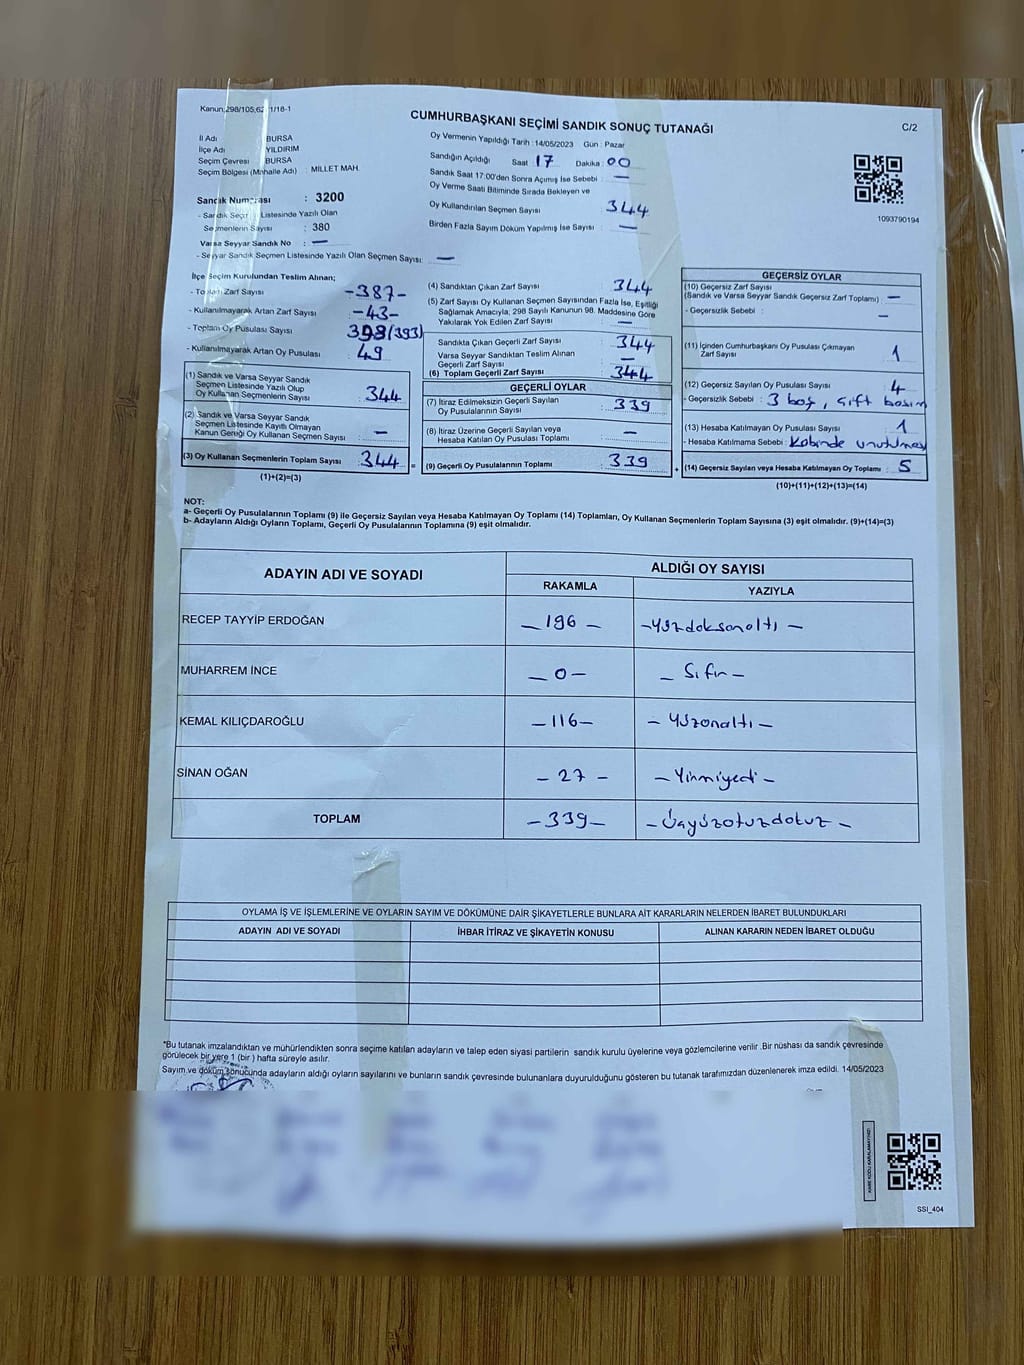 Kanun:298/105,62 1/18-1
CUMHURBAŞKANI SEÇİMİ SANDIK SONUÇ TUTANAĞI
C/2
İl Adı : BURSA
İlçe Adı : YILDIRIM
Seçim Çevresi : BURSA
Seçim Bölgesi (Mahalle Adı) : MİLLET MAH.
Sandık Numarası : 3200
- Sandık Seçmen Listesinde Yazılı Olan
Seçmenlerin Sayısı : 380
Varsa Seyyar Sandık No : —
- Seyyar Sandık Seçmen Listesinde Yazılı Olan Seçmen Sayısı: —
Oy Vermenin Yapıldığı Tarih : 14/05/2023 Gün : Pazar
Sandığın Açıldığı Saat 17 Dakika 00
Sandık Saat 17:00'den Sonra Açılmış İse Sebebi : —
Oy Verme Saati Bitiminde Sırada Bekleyen ve
Oy Kullandırılan Seçmen Sayısı : 344
Birden Fazla Sayım Döküm Yapılmış İse Sayısı : —
1093790194
İlçe Seçim Kurulundan Teslim Alınan;
- Toplam Zarf Sayısı -387-
- Kullanılmayarak Artan Zarf Sayısı -43-
- Toplam Oy Pusulası Sayısı 398(393)
- Kullanılmayarak Artan Oy Pusulası : 49
(1) Sandık ve Varsa Seyyar Sandık
Seçmen Listesinde Yazılı Olup
Oy Kullanan Seçmenlerin Sayısı : 344
(2) Sandık ve Varsa Seyyar Sandık
Seçmen Listesinde Kayıtlı Olmayan
Kanun Gereği Oy Kullanan Seçmen Sayısı : —
(3) Oy Kullanan Seçmenlerin Toplam Sayısı : 344
(1)+(2)=(3)
(4) Sandıktan Çıkan Zarf Sayısı : 344
(5) Zarf Sayısı Oy Kullanan Seçmen Sayısından Fazla İse, Eşitliği
Sağlamak Amacıyla; 298 Sayılı Kanunun 98. Maddesine Göre
Yakılarak Yok Edilen Zarf Sayısı : —
Sandıkta Çıkan Geçerli Zarf Sayısı : 344
Varsa Seyyar Sandıktan Teslim Alınan
Geçerli Zarf Sayısı : —
(6) Toplam Geçerli Zarf Sayısı : 344
GEÇERLİ OYLAR
(7) İtiraz Edilmeksizin Geçerli Sayılan
Oy Pusulalarının Sayısı : 339
(8) İtiraz Üzerine Geçerli Sayılan veya
Hesaba Katılan Oy Pusulası Toplamı : —
= (9) Geçerli Oy Pusulalarının Toplamı : 339
GEÇERSİZ OYLAR
(10) Geçersiz Zarf Sayısı
(Sandık ve Varsa Seyyar Sandık Geçersiz Zarf Toplamı) : —
- Geçersizlik Sebebi : —
(11) İçinden Cumhurbaşkanı Oy Pusulası Çıkmayan
Zarf Sayısı : 1
(12) Geçersiz Sayılan Oy Pusulası Sayısı : 4
- Geçersizlik Sebebi : 3 boş, çift basım
(13) Hesaba Katılmayan Oy Pusulası Sayısı : 1
- Hesaba Katılmama Sebebi : Kabinde unutulması
+ (14) Geçersiz Sayılan veya Hesaba Katılmayan Oy Toplamı : 5
(10)+(11)+(12)+(13)=(14)
NOT:
a- Geçerli Oy Pusulalarının Toplamı (9) ile Geçersiz Sayılan veya Hesaba Katılmayan Oy Toplamı (14) Toplamları, Oy Kullanan Seçmenlerin Toplam Sayısına (3) eşit olmalıdır. (9)+(14)=(3)
b- Adayların Aldığı Oyların Toplamı, Geçerli Oy Pusulalarının Toplamına (9) eşit olmalıdır.
ADAYIN ADI VE SOYADI ALDIĞI OY SAYISI
RAKAMLA YAZIYLA
RECEP TAYYİP ERDOĞAN — 196 — -Yüzdoksanaltı —
MUHARREM İNCE — 0 — — Sıfır —
KEMAL KILIÇDAROĞLU — 116 — — Yüzonaltı —
SİNAN OĞAN — 27 — — Yirmiyedi —
TOPLAM — 339 — — Üçyüzotuzdokuz —
OYLAMA İŞ VE İŞLEMLERİNE VE OYLARIN SAYIM VE DÖKÜMÜNE DAİR ŞİKAYETLERLE BUNLARA AİT KARARLARIN NELERDEN İBARET BULUNDUKLARI
ADAYIN ADI VE SOYADI İHBAR İTİRAZ VE ŞİKAYETİN KONUSU ALINAN KARARIN NEDEN İBARET OLDUĞU
*Bu tutanak imzalandıktan ve mühürlendikten sonra seçime katılan adayların ve talep eden siyasi partilerin sandık kurulu üyelerine veya gözlemcilerine verilir .Bir nüshası da sandık çevresinde
görülecek bir yere 1 (bir ) hafta süreyle asılır.
Sayım ve döküm sonucunda adayların aldığı oyların sayılarını ve bunların sandık çevresinde bulunanlara duyurulduğunu gösteren bu tutanak tarafımızdan düzenlenerek imza edildi. 14/05/2023
SSİ_404